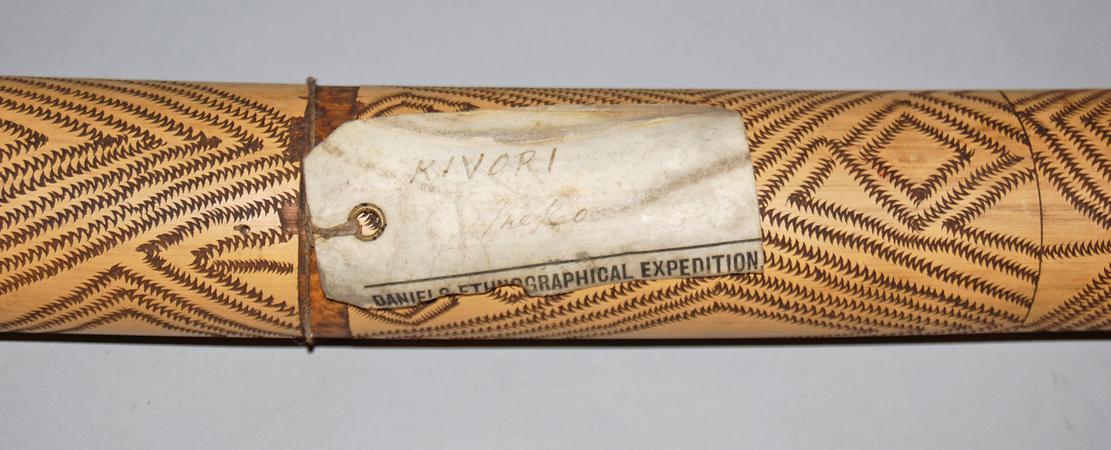 KIVORI
DANIELS ETHNOGRAPHICAL EXPEDITION